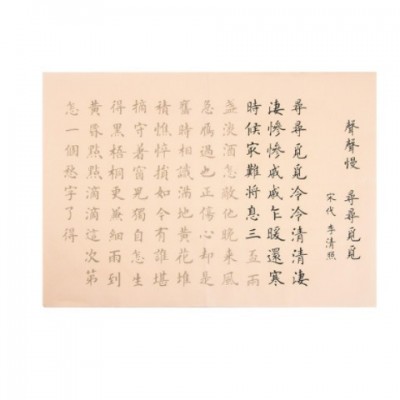 聲聲慢 尋尋覓覓
宋代 李清照
尋尋覓覓冷冷清清淒
淒慘慘戚戚乍暖還寒
時候冣難將息三五兩
盞淡酒怎敵他晚來風
急雁過也正傷心卻是
舊時相識滿地黃花堆
積憔悴損如今有誰堪
摘守著窗兒獨自怎生
得黑梧桐更兼細雨到
黃昏點點滴滴這次第
怎一個愁字了得